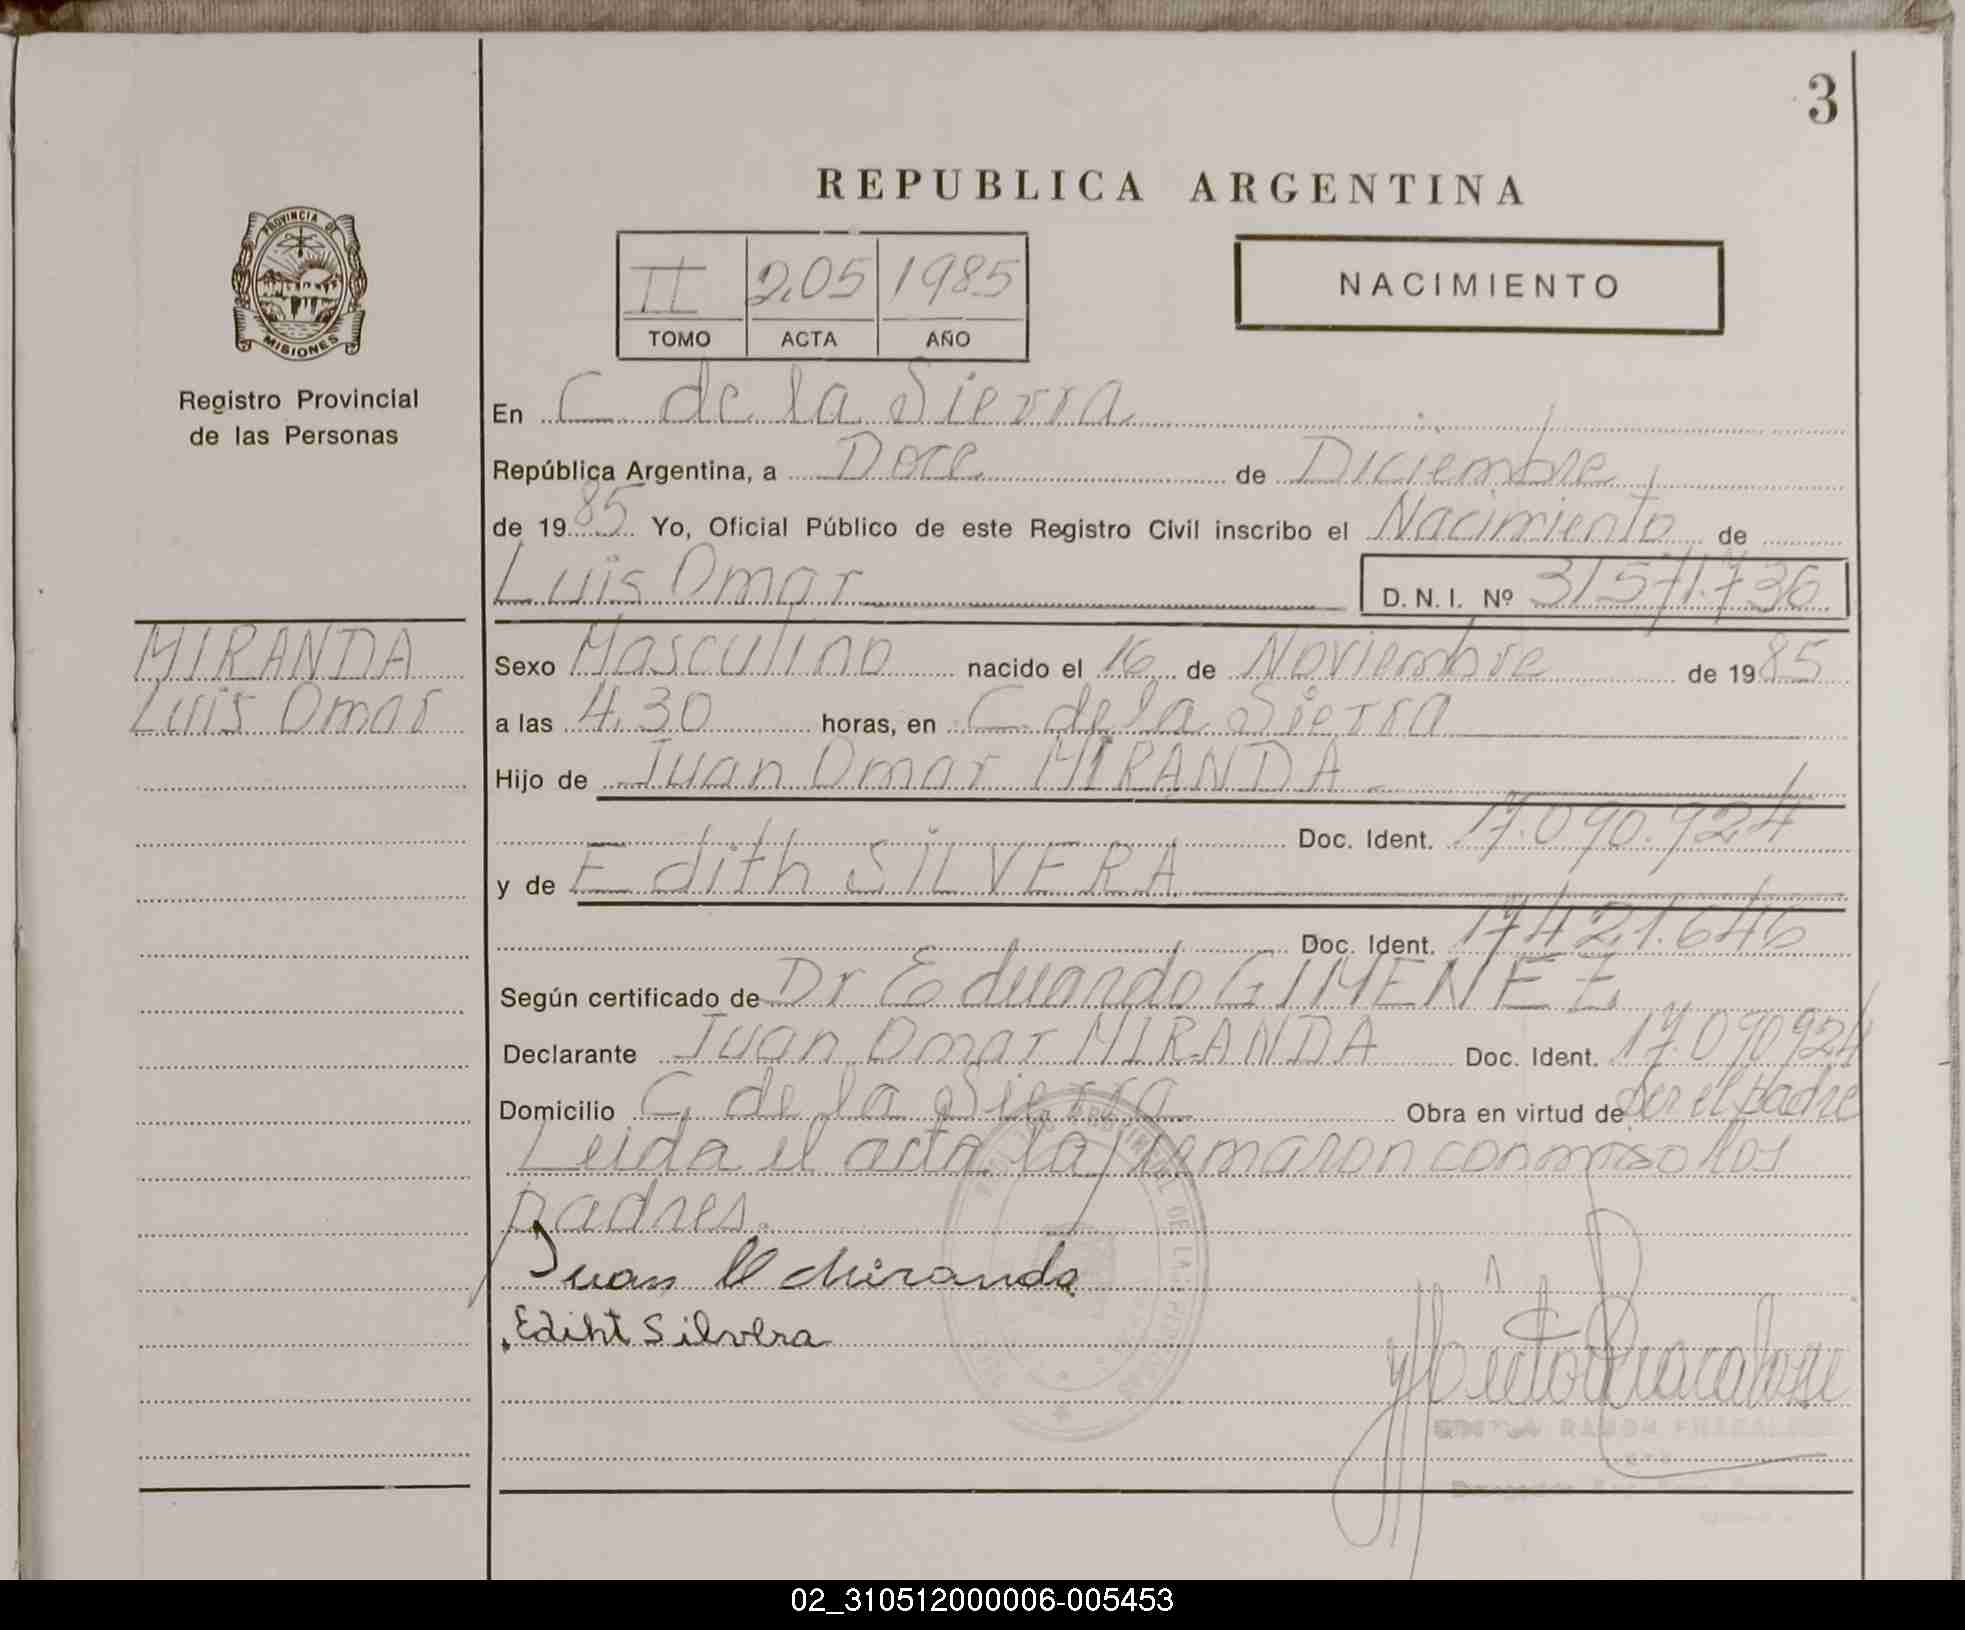 3
REPUBLICA ARGENTINA
PROVINCIA DE
MISIONES
Registro Provincial
de las Personas
II 205 1985
TOMO ACTA AÑO
NACIMIENTO
En C. de la Sierra
República Argentina, a Doce de Diciembre
de 1985 Yo, Oficial Público de este Registro Civil inscribo el Nacimiento de
Luis Omar D. N. I. Nº 31571.736
MIRANDA
Luis Omar
Sexo Masculino nacido el 16 de Noviembre de 1985
a las 4.30 horas, en C. de la Sierra
Hijo de Juan Omar MIRANDA
Doc. Ident. 17.090.924
y de Edith SILVERA
Doc. Ident. 17421.646
Según certificado de Dr Eduardo GIMENEZ
Declarante Juan Omar MIRANDA Doc. Ident. 17.090924
Domicilio C. de la Sierra Obra en virtud de ser el padre
Leida el acta la firmaron conmigo los
padres.
Juan O Miranda
Ediht Silvera
RAMON
02_310512000006-005453